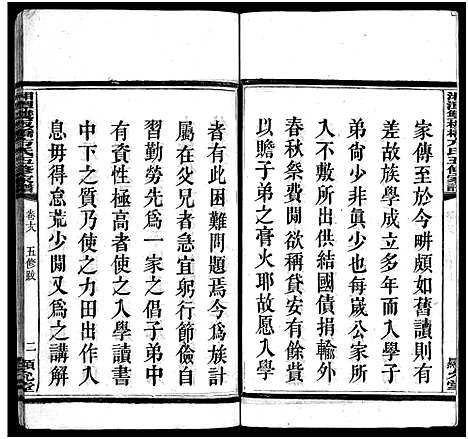 家傳至於今畊頗如舊讀則有
年此族學成立多年而入學子
弟尙少非眞少也每嵗公家所
入不敷所出結國債捐輸外
春秋祭費開欲稱貸安有餘貲
以贍子弟之膏火耶故愿入學
者有此困難問題焉今為族計
屬在父兄者急宜躬行節儉自
習勤勞先為一家之倡子弟中
有資性極高者使之入學讀書
中下之質乃使之力田出作入
息毋得怠荒少閒又為之講解
五修跋
二